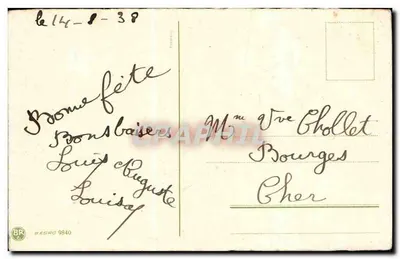 le 14-8-38
Bonne fête
Bons baisers
Louis Auguste
Louisa
Mme Vve Chollet
Bourges
Cher
BR
9840